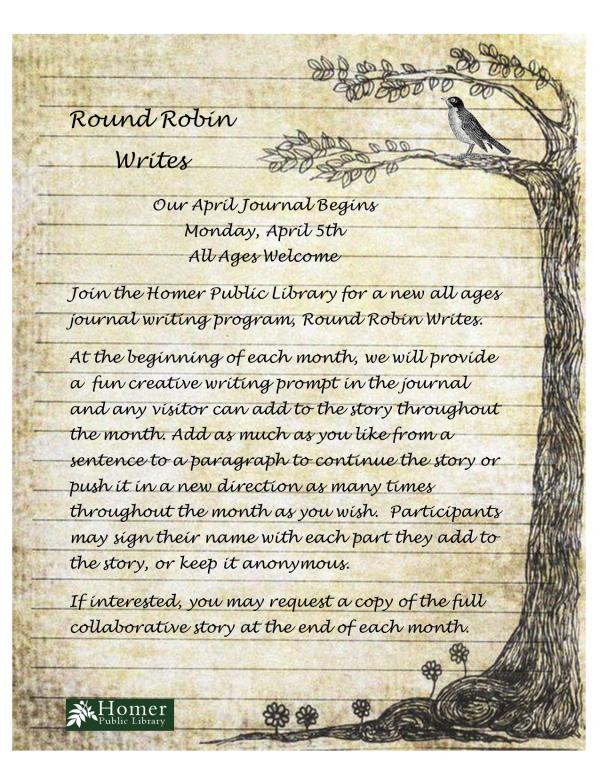 Round Robin
Writes
Our April Journal Begins
Monday, April 5th
All Ages Welcome
Join the Homer Public Library for a new all ages
journal writing program, Round Robin Writes.
At the beginning of each month, we will provide
a fun creative writing prompt in the journal
and any visitor can add to the story throughout
the month. Add as much as you like from a
sentence to a paragraph to continue the story or
push it in a new direction as many times
throughout the month as you wish. Participants
may sign their name with each part they add to
the story, or keep it anonymous.
If interested, you may request a copy of the full
collaborative story at the end of each month.
Homer
Public Library